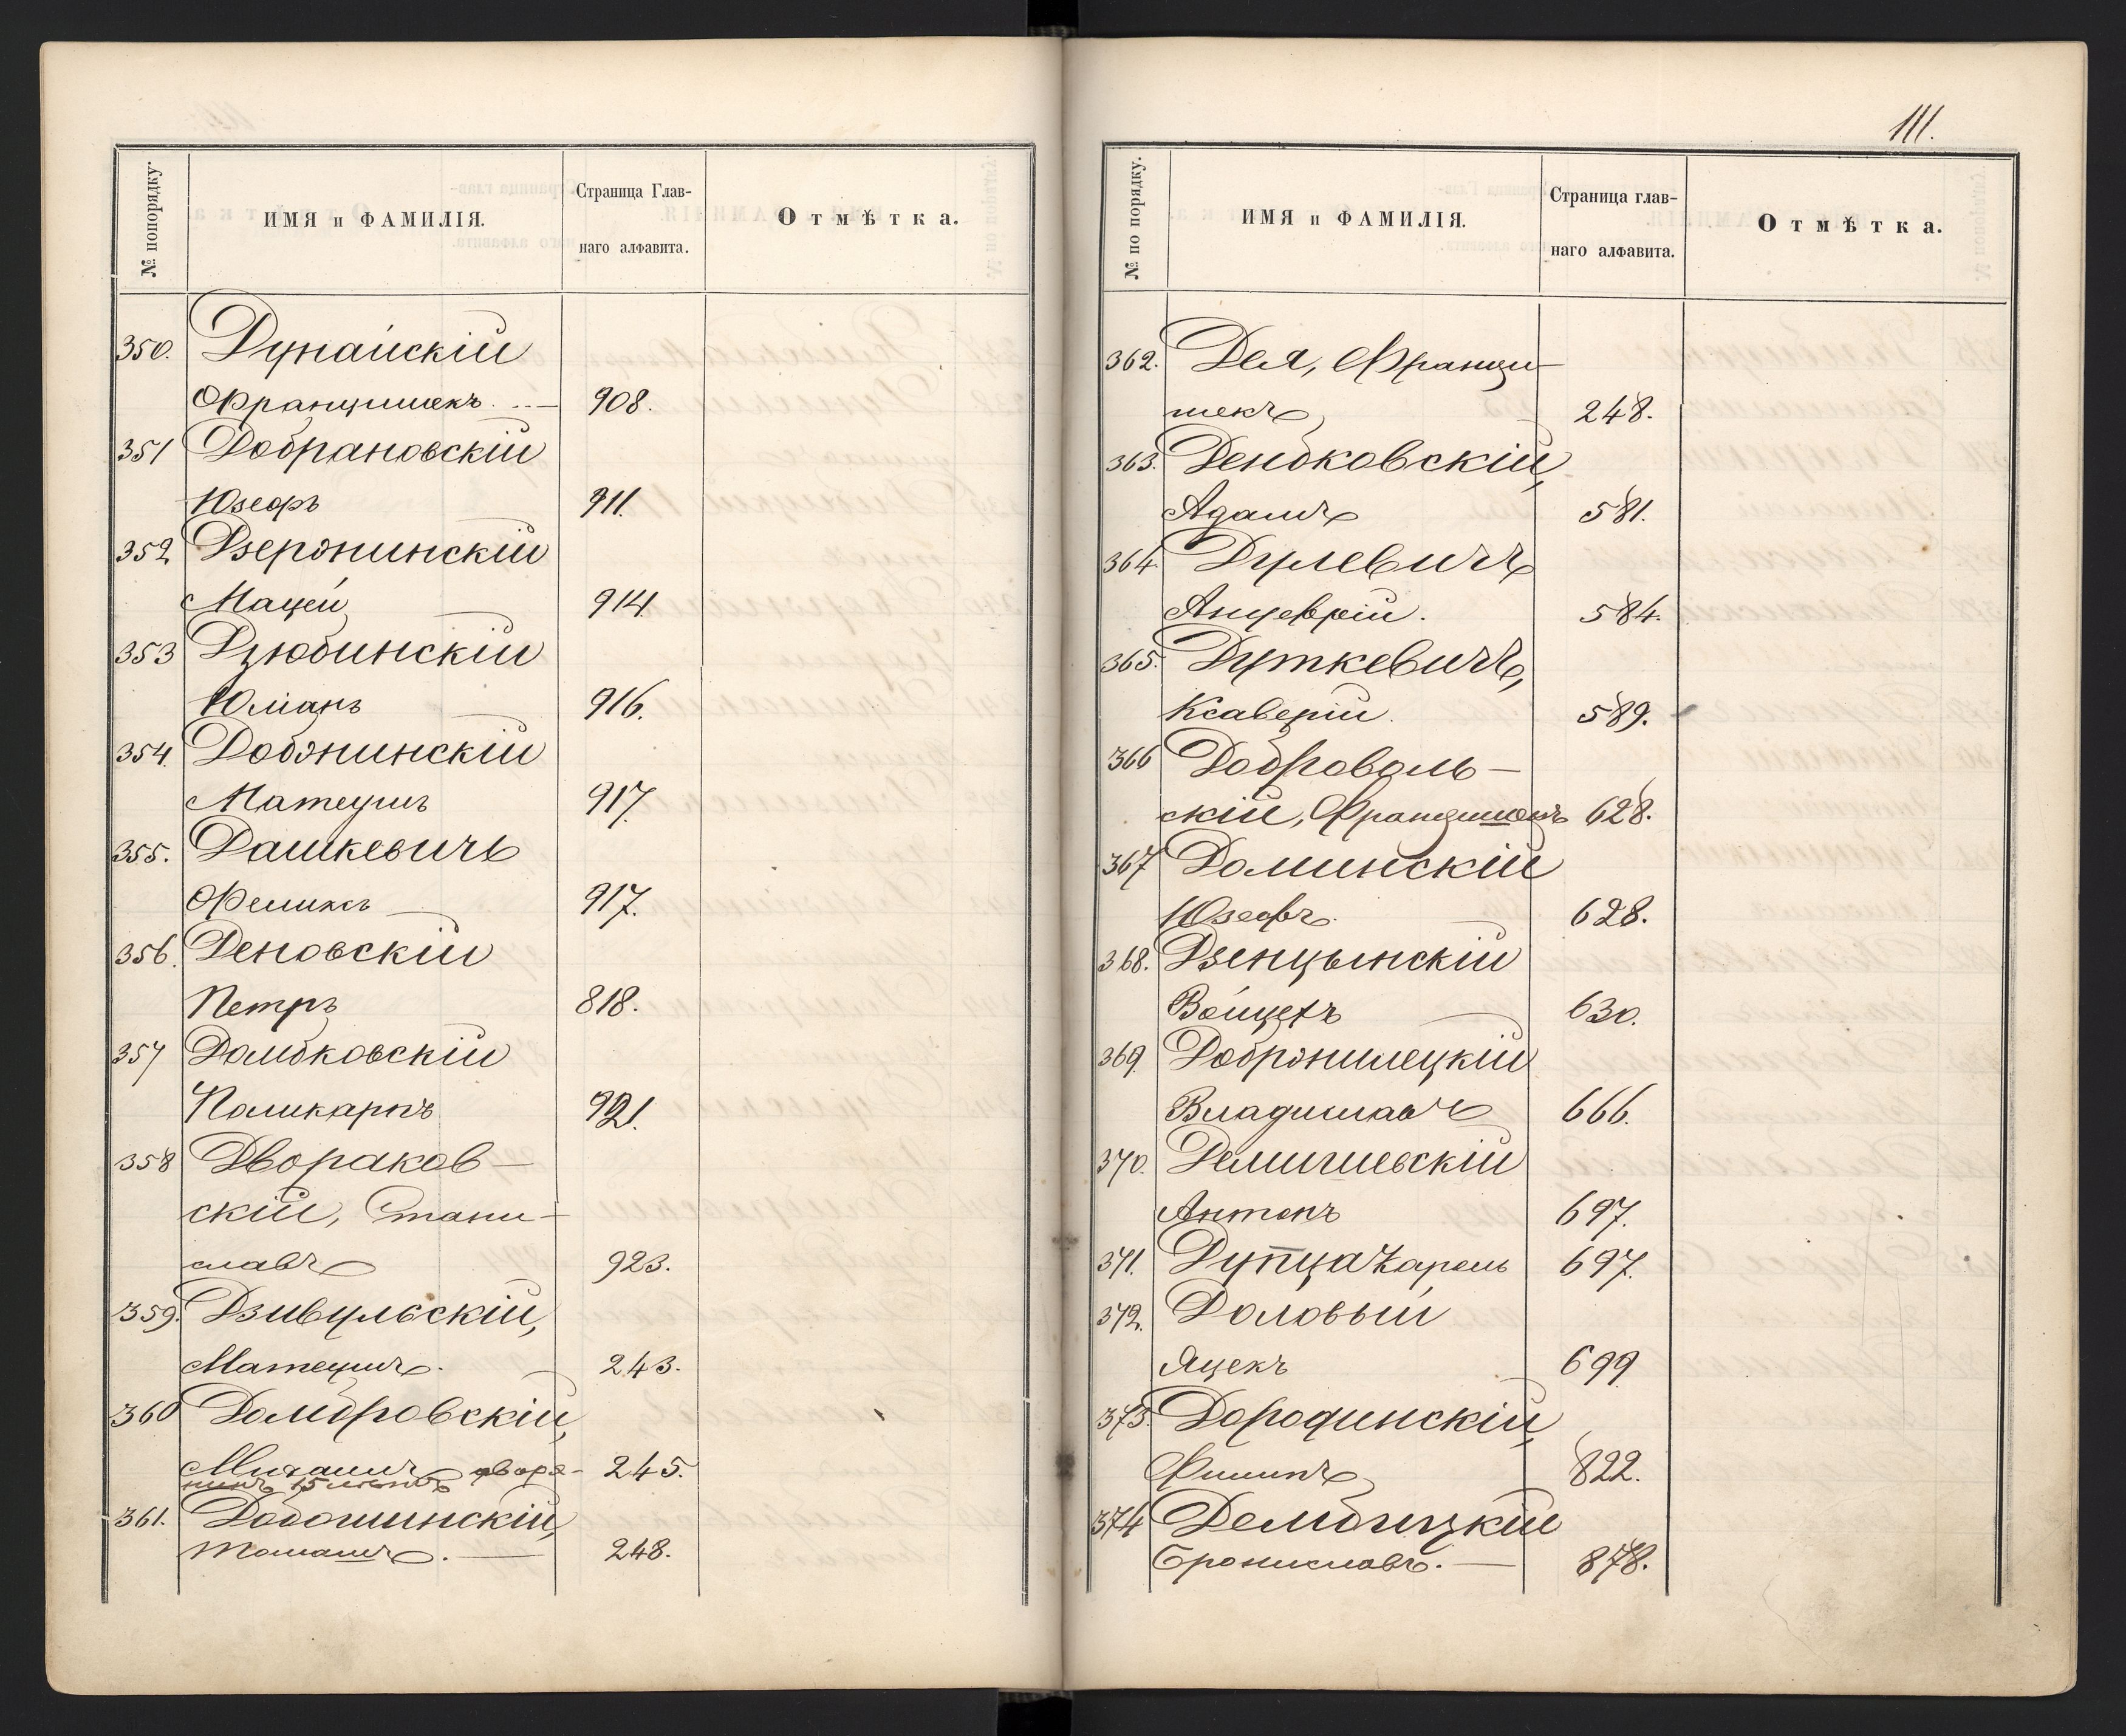 № попорядку.
ИМЯ и ФАМИЛІЯ.
Страница Глав-
наго алфавита.
Отмѣтка.
350. Дунайскій
Францишекъ. 908.
351 Добрановскій
Юзефъ 911.
352 Дзержнинскій
Мацей 914.
353 Дзюбинскій
Юліанъ 916.
354. Добжинскій
Матеушъ 917.
355. Дашкевичъ
Феликсъ 917.
356. Деновскій
Петръ 818.
357 Домбковскій
Поликарпъ 921.
358 Двораков-
скій, Стани-
славъ 923.
359. Дзивульскій,
Матеушъ. 243.
360 Домбровскій,
Михаилъ дворя- 245.
нинъ 15 лѣтъ
361. Добошинскій,
Томашъ. 248.
111.
№ по порядку.
ИМЯ и ФАМИЛІЯ.
Страница глав-
наго алфавита.
Отмѣтка.
362. Дея, Франци-
шекъ 248.
363. Дембковскій,
Адамъ 581.
364. Дулевичъ
Ануфрій. 584.
365. Дуткевичъ,
Ксаверій. 589.
366 Доброволь-
скій, Францишекъ 628.
367 Доминскій
Юзефъ. 628.
368. Дзенцынскій
Войцехъ 630.
369. Добржилецкій
Владиславъ 666.
370. Антонъ 697.
371. Дупца Кароль 697.
372. Доловый
Яцекъ 699
373. Дородинскій,
Филипъ 822.
374 Дембицкій
Брониславъ. 878.